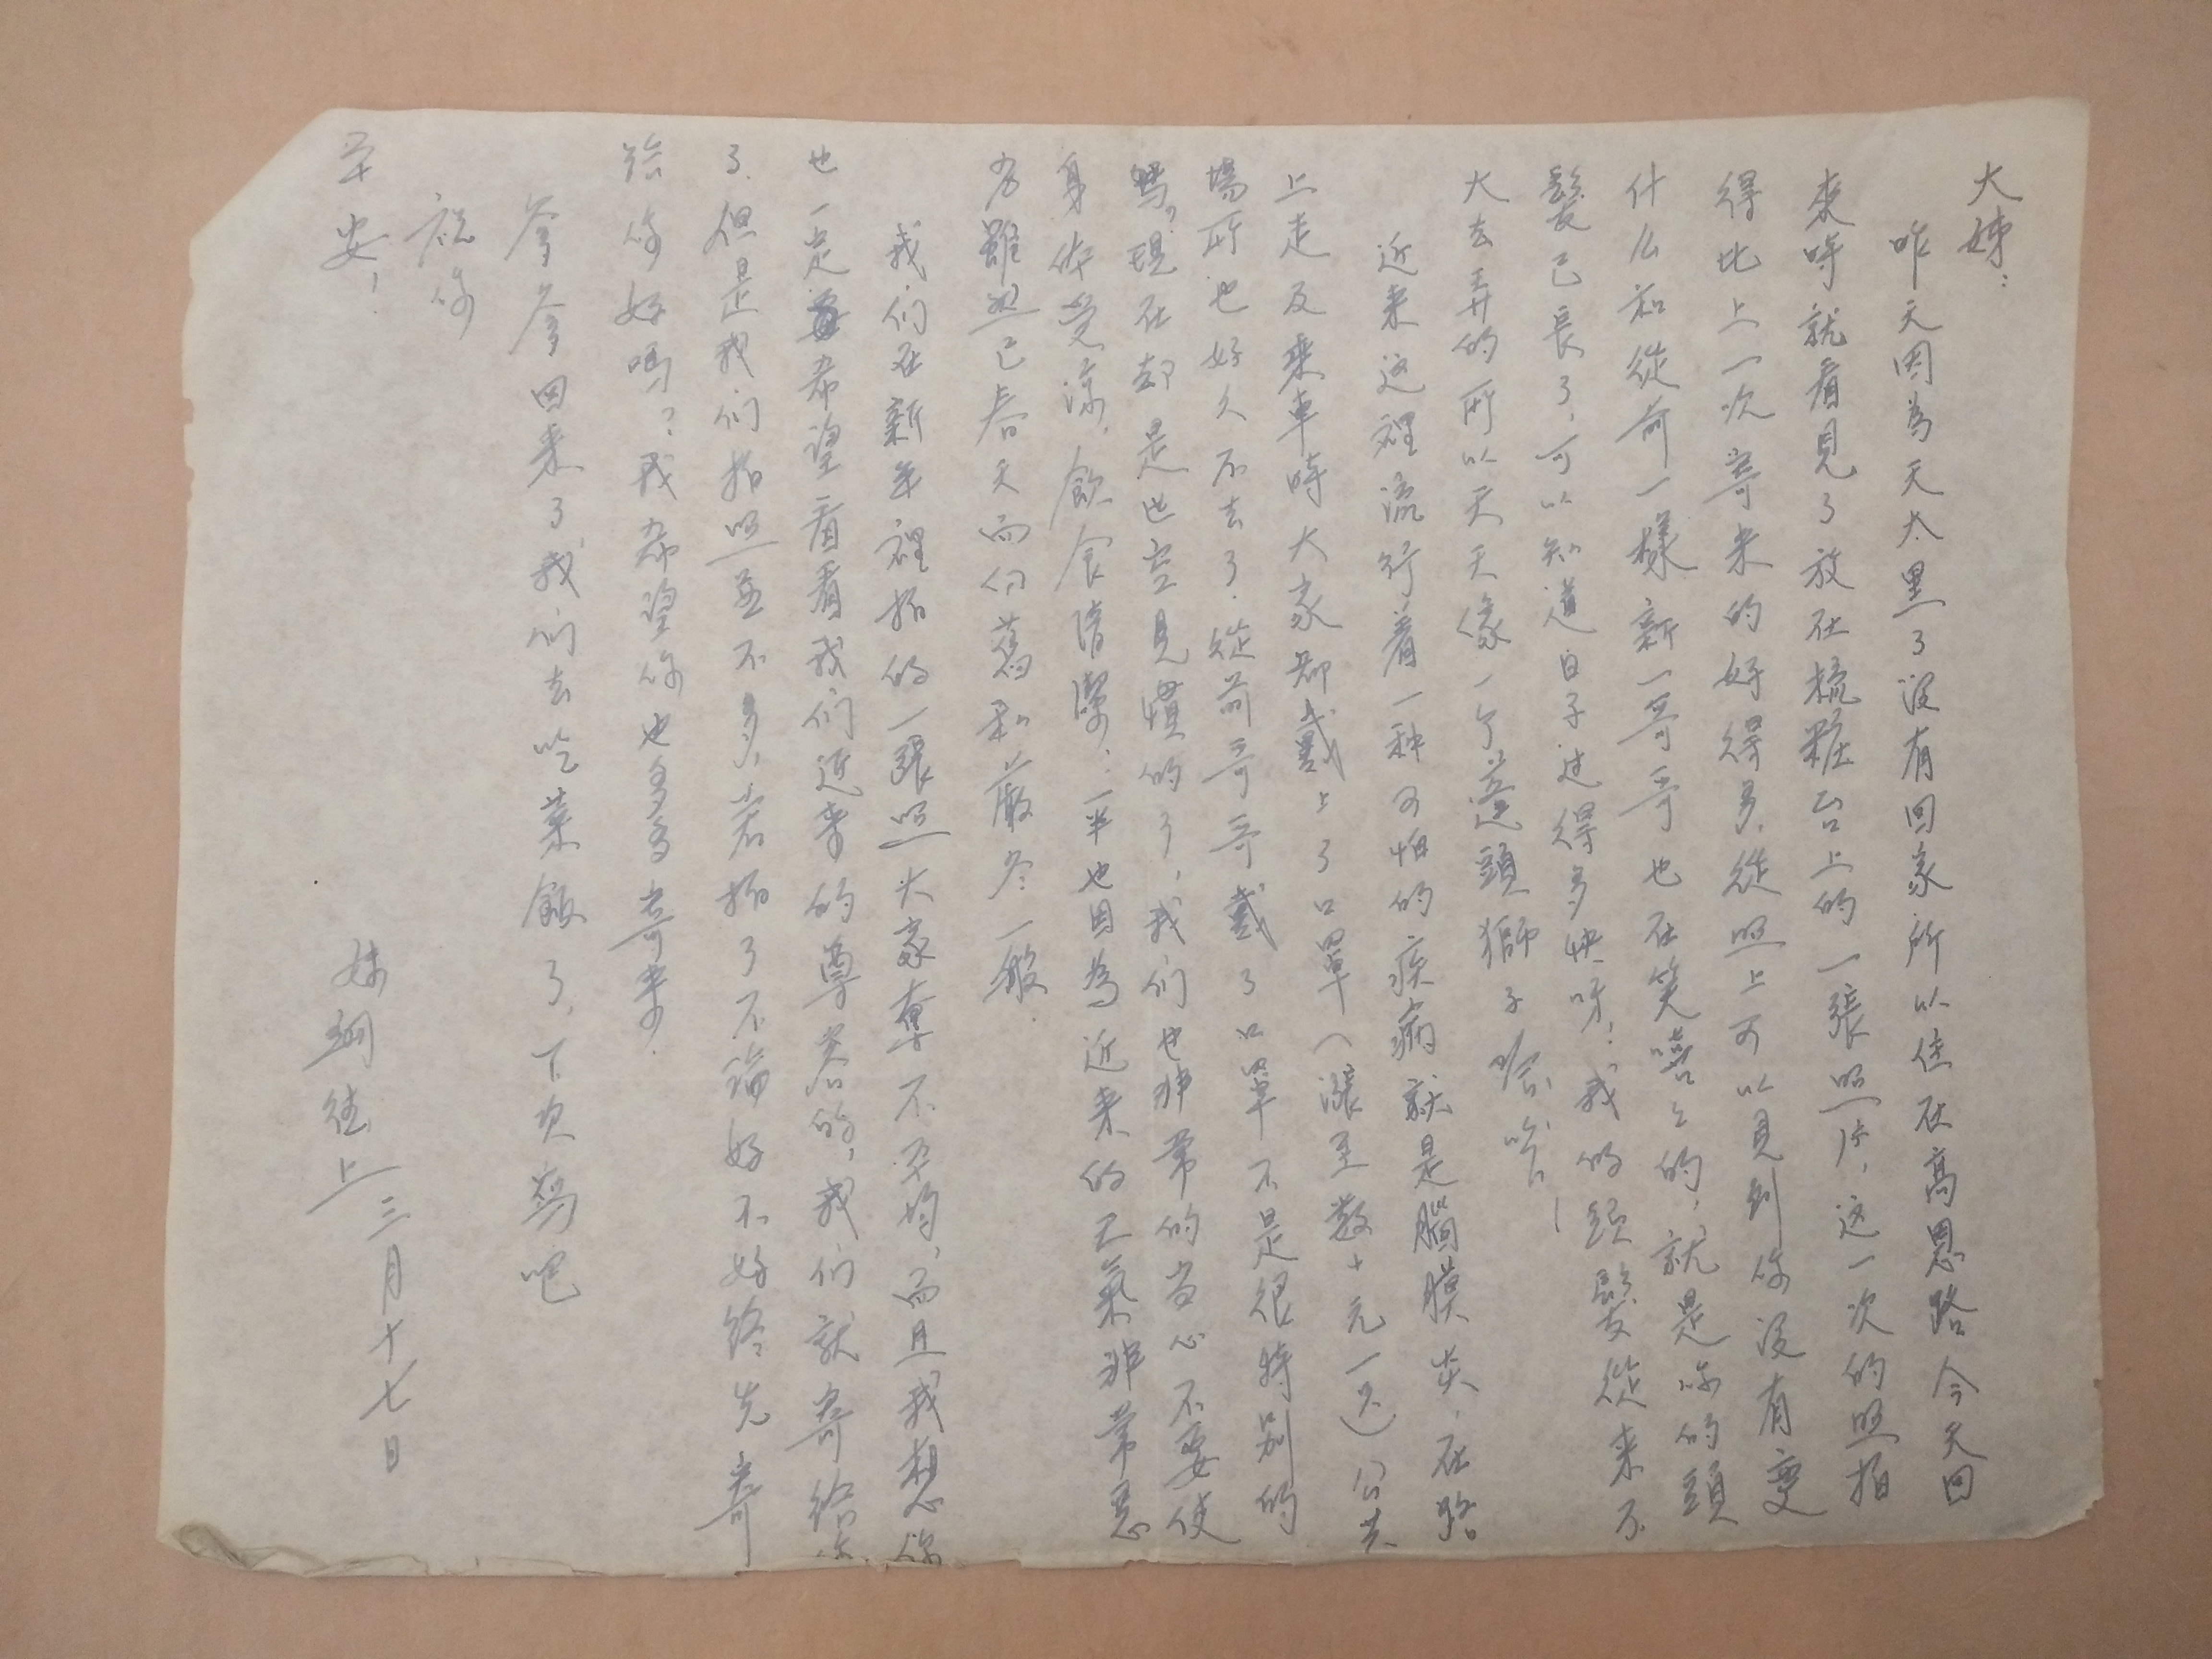 大姊：
昨天因為天太黑了沒有回家所以住在高恩路今天回
來時就看見了放在梳粧台上的一張照片，这一次的照拍
得比上一次寄来的好得多，從照上可以見到你沒有变
什么和從前一樣新一哥哥也在笑嘻々的，就是你的頭
髮已長了，可以知道日子过得多快呀！我的頭髮從来不
大去弄的所以天天像一个蓬頭獅子哈哈！
近来这裡流行着一种可怕的疾病就是腦膜炎，在路
上走及乘車時大家都戴上了口罩（漲至数十元一只）公共
場所也好久不去了，從前哥哥戴了口罩不是很特別的
嗎，現在却是也空見慣的了，我们也非常的当心不要使
身体受涼，飲食清潔，一半也因為近来的天氣非常惡
劣雖然已春天而仍舊和嚴冬一般．
我们在新年裡拍的一張照大家奪不平均，而且我想你
也一定希望看看我们近来的尊容的，我们就寄給你
了．但是我们拍照並不多，若拍了不論好不好終先寄
給你好嗎？我希望你也多多寄来．
爹爹回来了我们去吃菜飯了，下次寫吧
祝你
平安！
妹 上
三月十七日